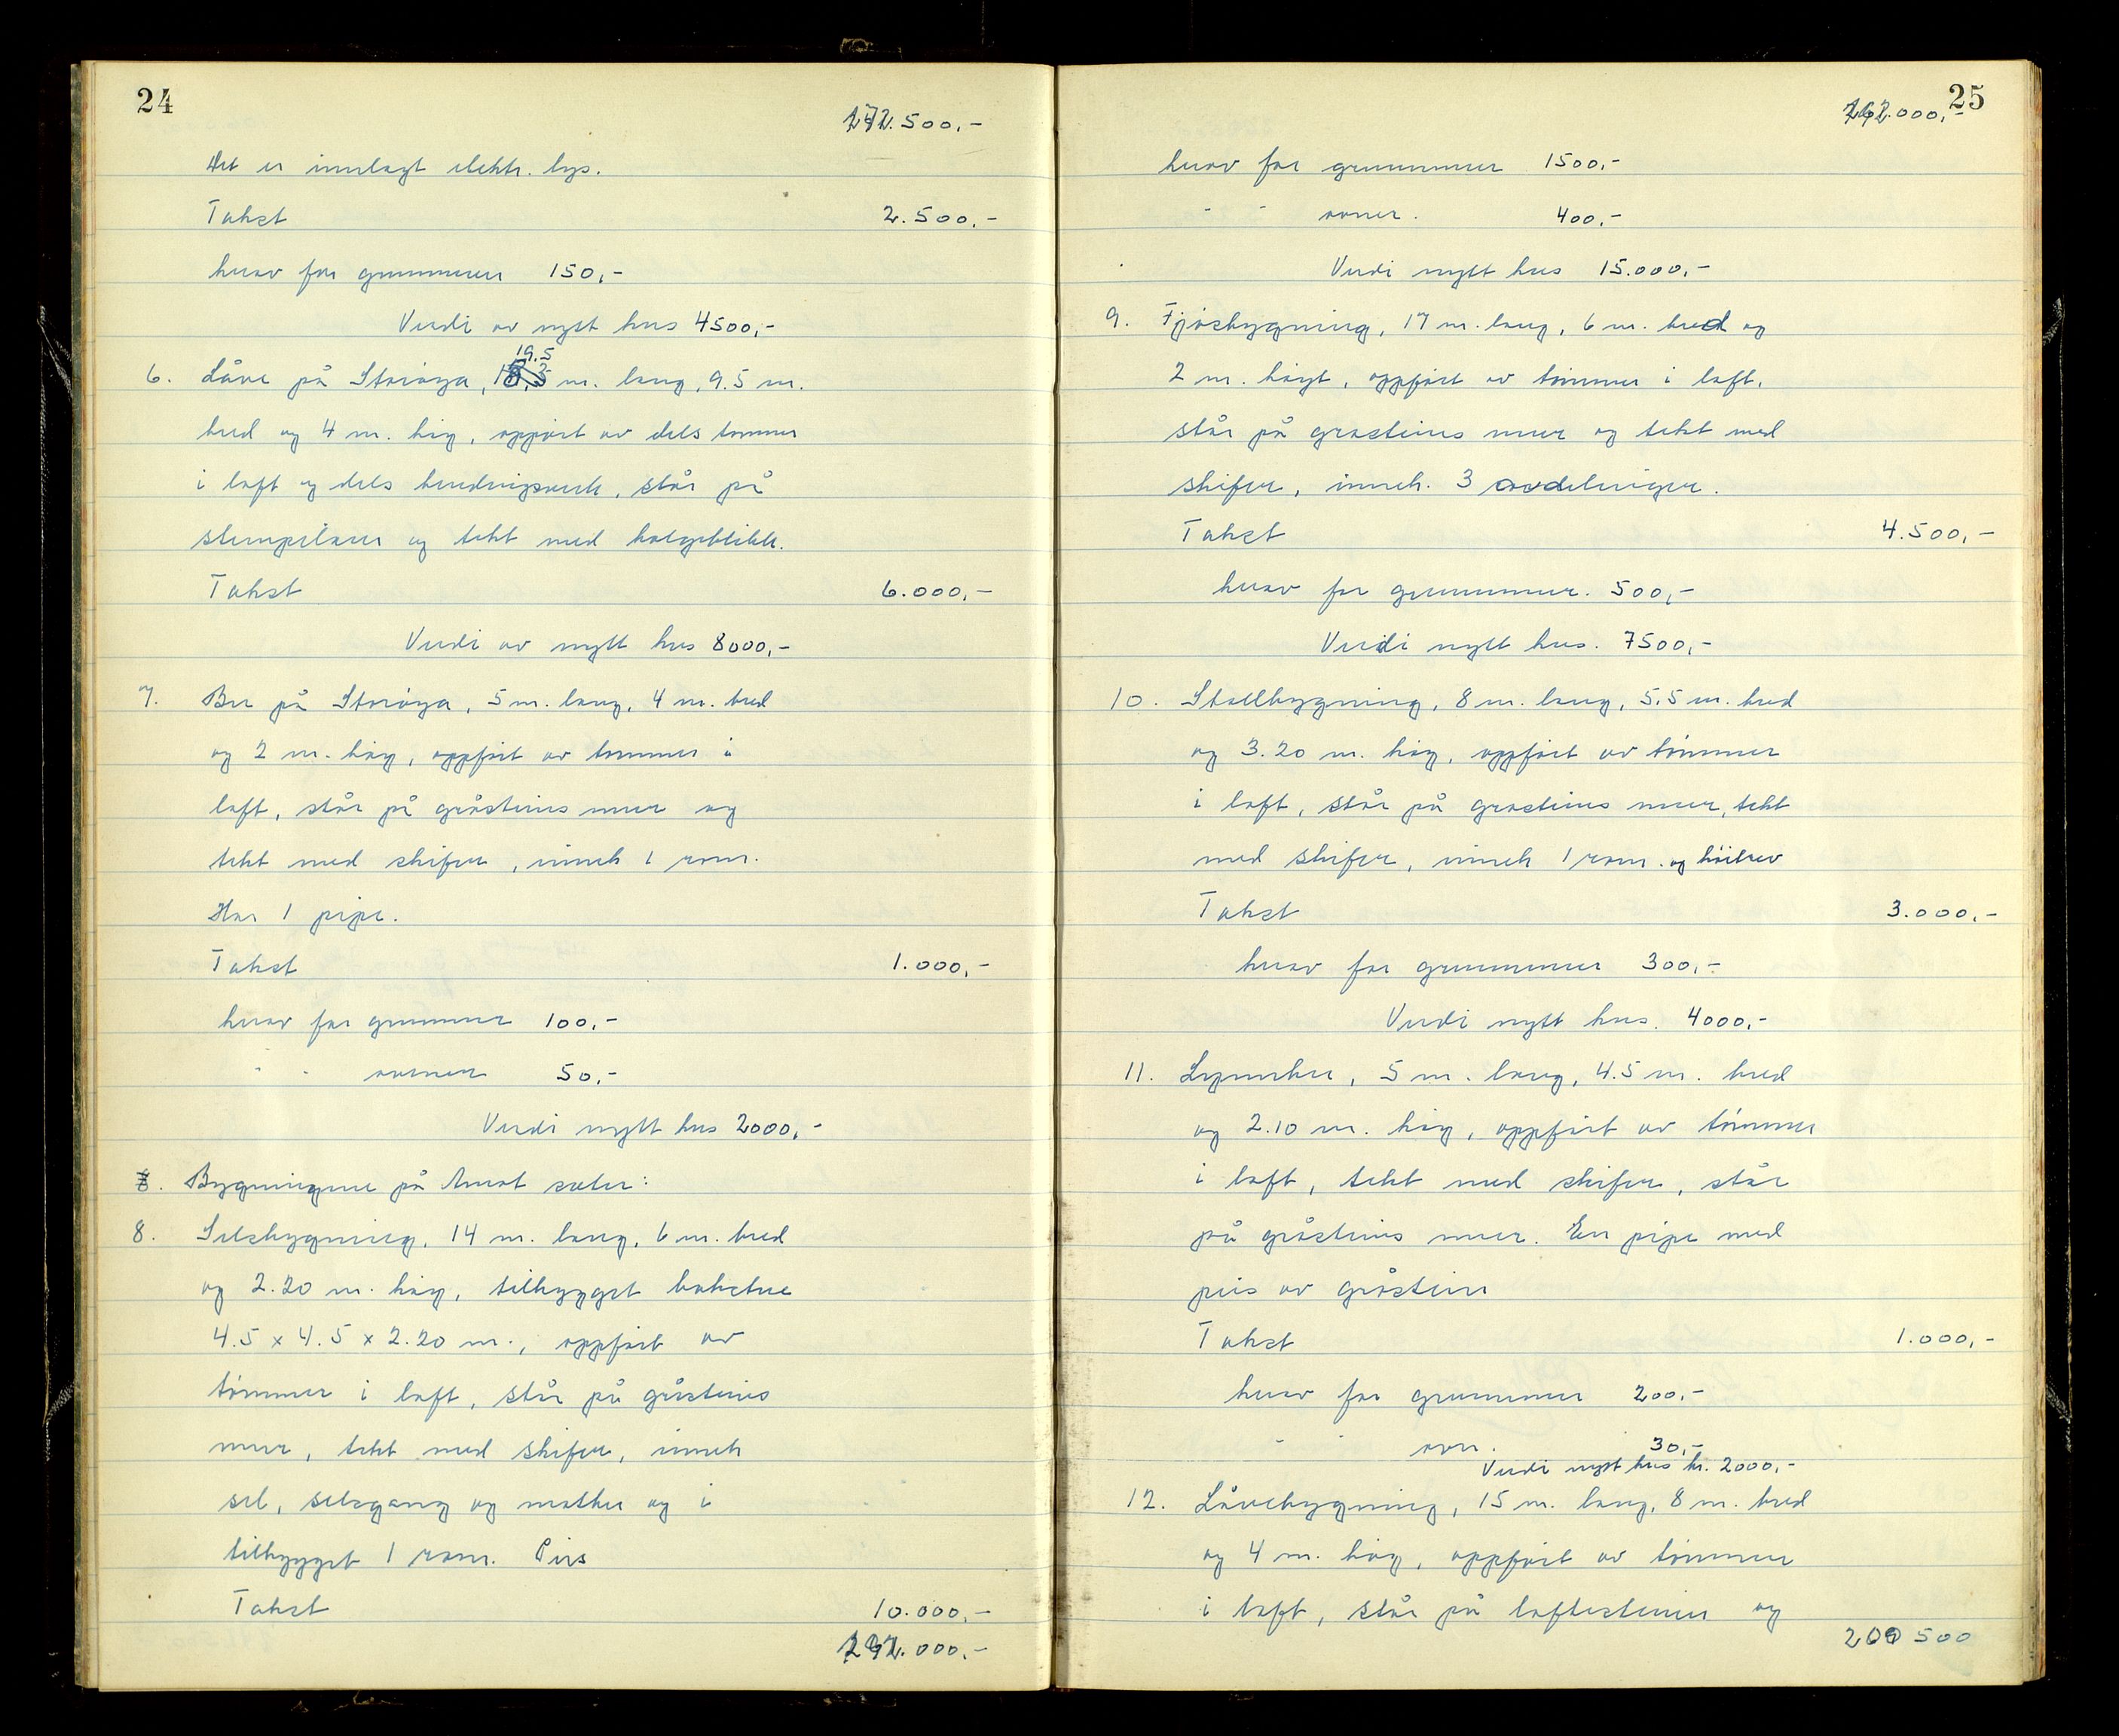 24
.500,-
Det er innlagt elektr. lys.
Takst 2.500,-
herav for grunnmuren 150,-
Verdi av nytt hus 4500,-
19.5
6. Låve på Storøya, m. lang, 9.5 m.
bred og 4 m. høg, oppørt av dels tømmer
i laft og dels bindingsverk, står på
stenpilarer og tekt med bølgeblikk.
Takst 6.000,-
Verdi av nytt hus 8000,-
7. Bur på Storøya, 5 m. lang, 4 m. bred
og 2 m. høg, oppført av tømmer i
laft, står på gråsteins mur og
tekt med skifer, inneh 1 rom.
Har 1 pipe.
Takst 1.000,-
herav for grunnmur 100,-
" " ovnen 50,-
Verdi nytt hus 2000,-
Bygningene på Amot sæter:
8. Selsbygning, 14 m. lang, 6 m. bred
og 2.20 m. høg, tilbygget bakstue
4.5 x 4.5 x 2.20 m., oppført av
tømmer i laft, står på gråsteins
mur, tekt med skifer, inneh
sel, selsgang og matbu og i
tilbygget 1 rom. Peis
Takst 10.000,-
.000,-
25
.000,-
herav for grunnmur 1500,-
" " ovner. 400,-
Verdi nytt hus 15.000,-
9. Fjøsbygning, 17 m. lang, 6 m. bred og
2 m. høgt, oppført av tømmer i laft,
står på gråsteins mur og tekt med
skifer, inneh. 3 avdelinger.
Takst 4.500,-
herav for grunnmur. 500,-
Verdi nytt hus. 7500,-
10. Stallbygning, 8 m. lang, 5.5 m. bred
og 3.20 m. høg, oppført av tømmer
i laft, står på gråsteins mur, tekt
med skifer, inneh 1 rom. og
Takst 3.000,-
herav for grunnmur 300,-
Verdi nytt hus. 4000,-
11. 5 m. lang, 4.5 m. bred
og 2.10 m. høg, oppført av tømmer
i laft, tekt med skifer, står
på gråsteins mur. En pipe med
peis av gråstein
Takst 1.000,-
herav for grunnmur 200,-
" " ovn. 30,-
Verdi nytt hus kr. 2000,-
12. Låvebygning, 15 m. lang, 8 m. bred
og 4 m. høg, oppført av tømmer
i laft, står på laftesteiner og
500